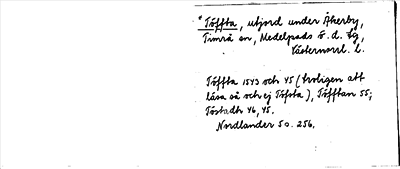 * Töffta, utjord under Åkerby,
Timrå sn, Medelpads ö. d. tg,
Västernorrl. l.
Töffta 1543 och 45 (troligen att
läsa så och ej Tofsta), Töfftan 55;
Töstadh 46, 45.
Nordlander 5 s. 256.